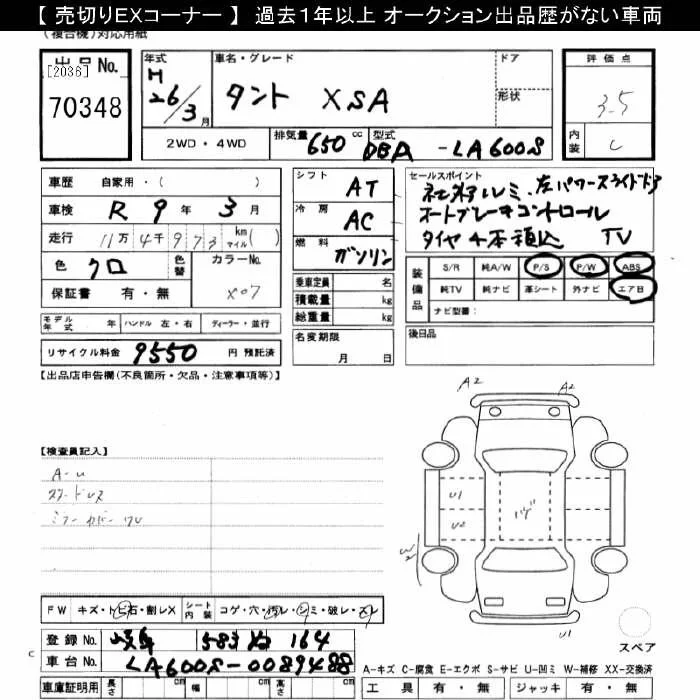 【 売切りEXコーナー 】 過去1年以上 オークション出品歴がない車両
（複合機）対応用紙
出品No. 年式 車名・グレード ドア 評価点
[2036] H
70348 26/3月 タント XSA 形状 3.5
内装 C
2WD・4WD 排気量 650cc 型式 DBA -LA600S
車歴 自家用・( ) シフト AT セールスポイント
車検 R 9年 3月 冷房 AC 社外アルミ、左パワースライドドア
走行 11万4千973 km マイル( ) 燃料 ガソリン オートブレーキコントロール
タイヤ4本積込 TV
色 クロ 色替 カラーNo. X07
保証書 有・無
乗車定員 名
積載量 kg
総重量 kg
装備品 S/R 純A/W P/S P/W ABS
純TV 純ナビ 革シート 外ナビ エアB
ナビ型番：
モデル年式 年 ハンドル 左・右 ディーラー・並行
名変期限 月 日
後日品
リサイクル料金 9550 円 預託済
【出品店申告欄(不良箇所・欠品・注意事項等)】
A2 A2
【検査員記入】
A-U
U1
U2
ハゲ
W2
U1
FW キズ・トビ石・割レX シート内装 コゲ・穴・汚レ・シミ・破レ・スレ
登録No. 岐阜 583 ぬ 164
C 車台No. LA600S-0089488
スペア
A-キズ C-腐食 E-エクボ S-サビ U-凹ミ W-補修 XX-交換済
車庫証明用 長さ cm 幅 cm 高さ cm 工具 有・無 ジャッキ 有・無